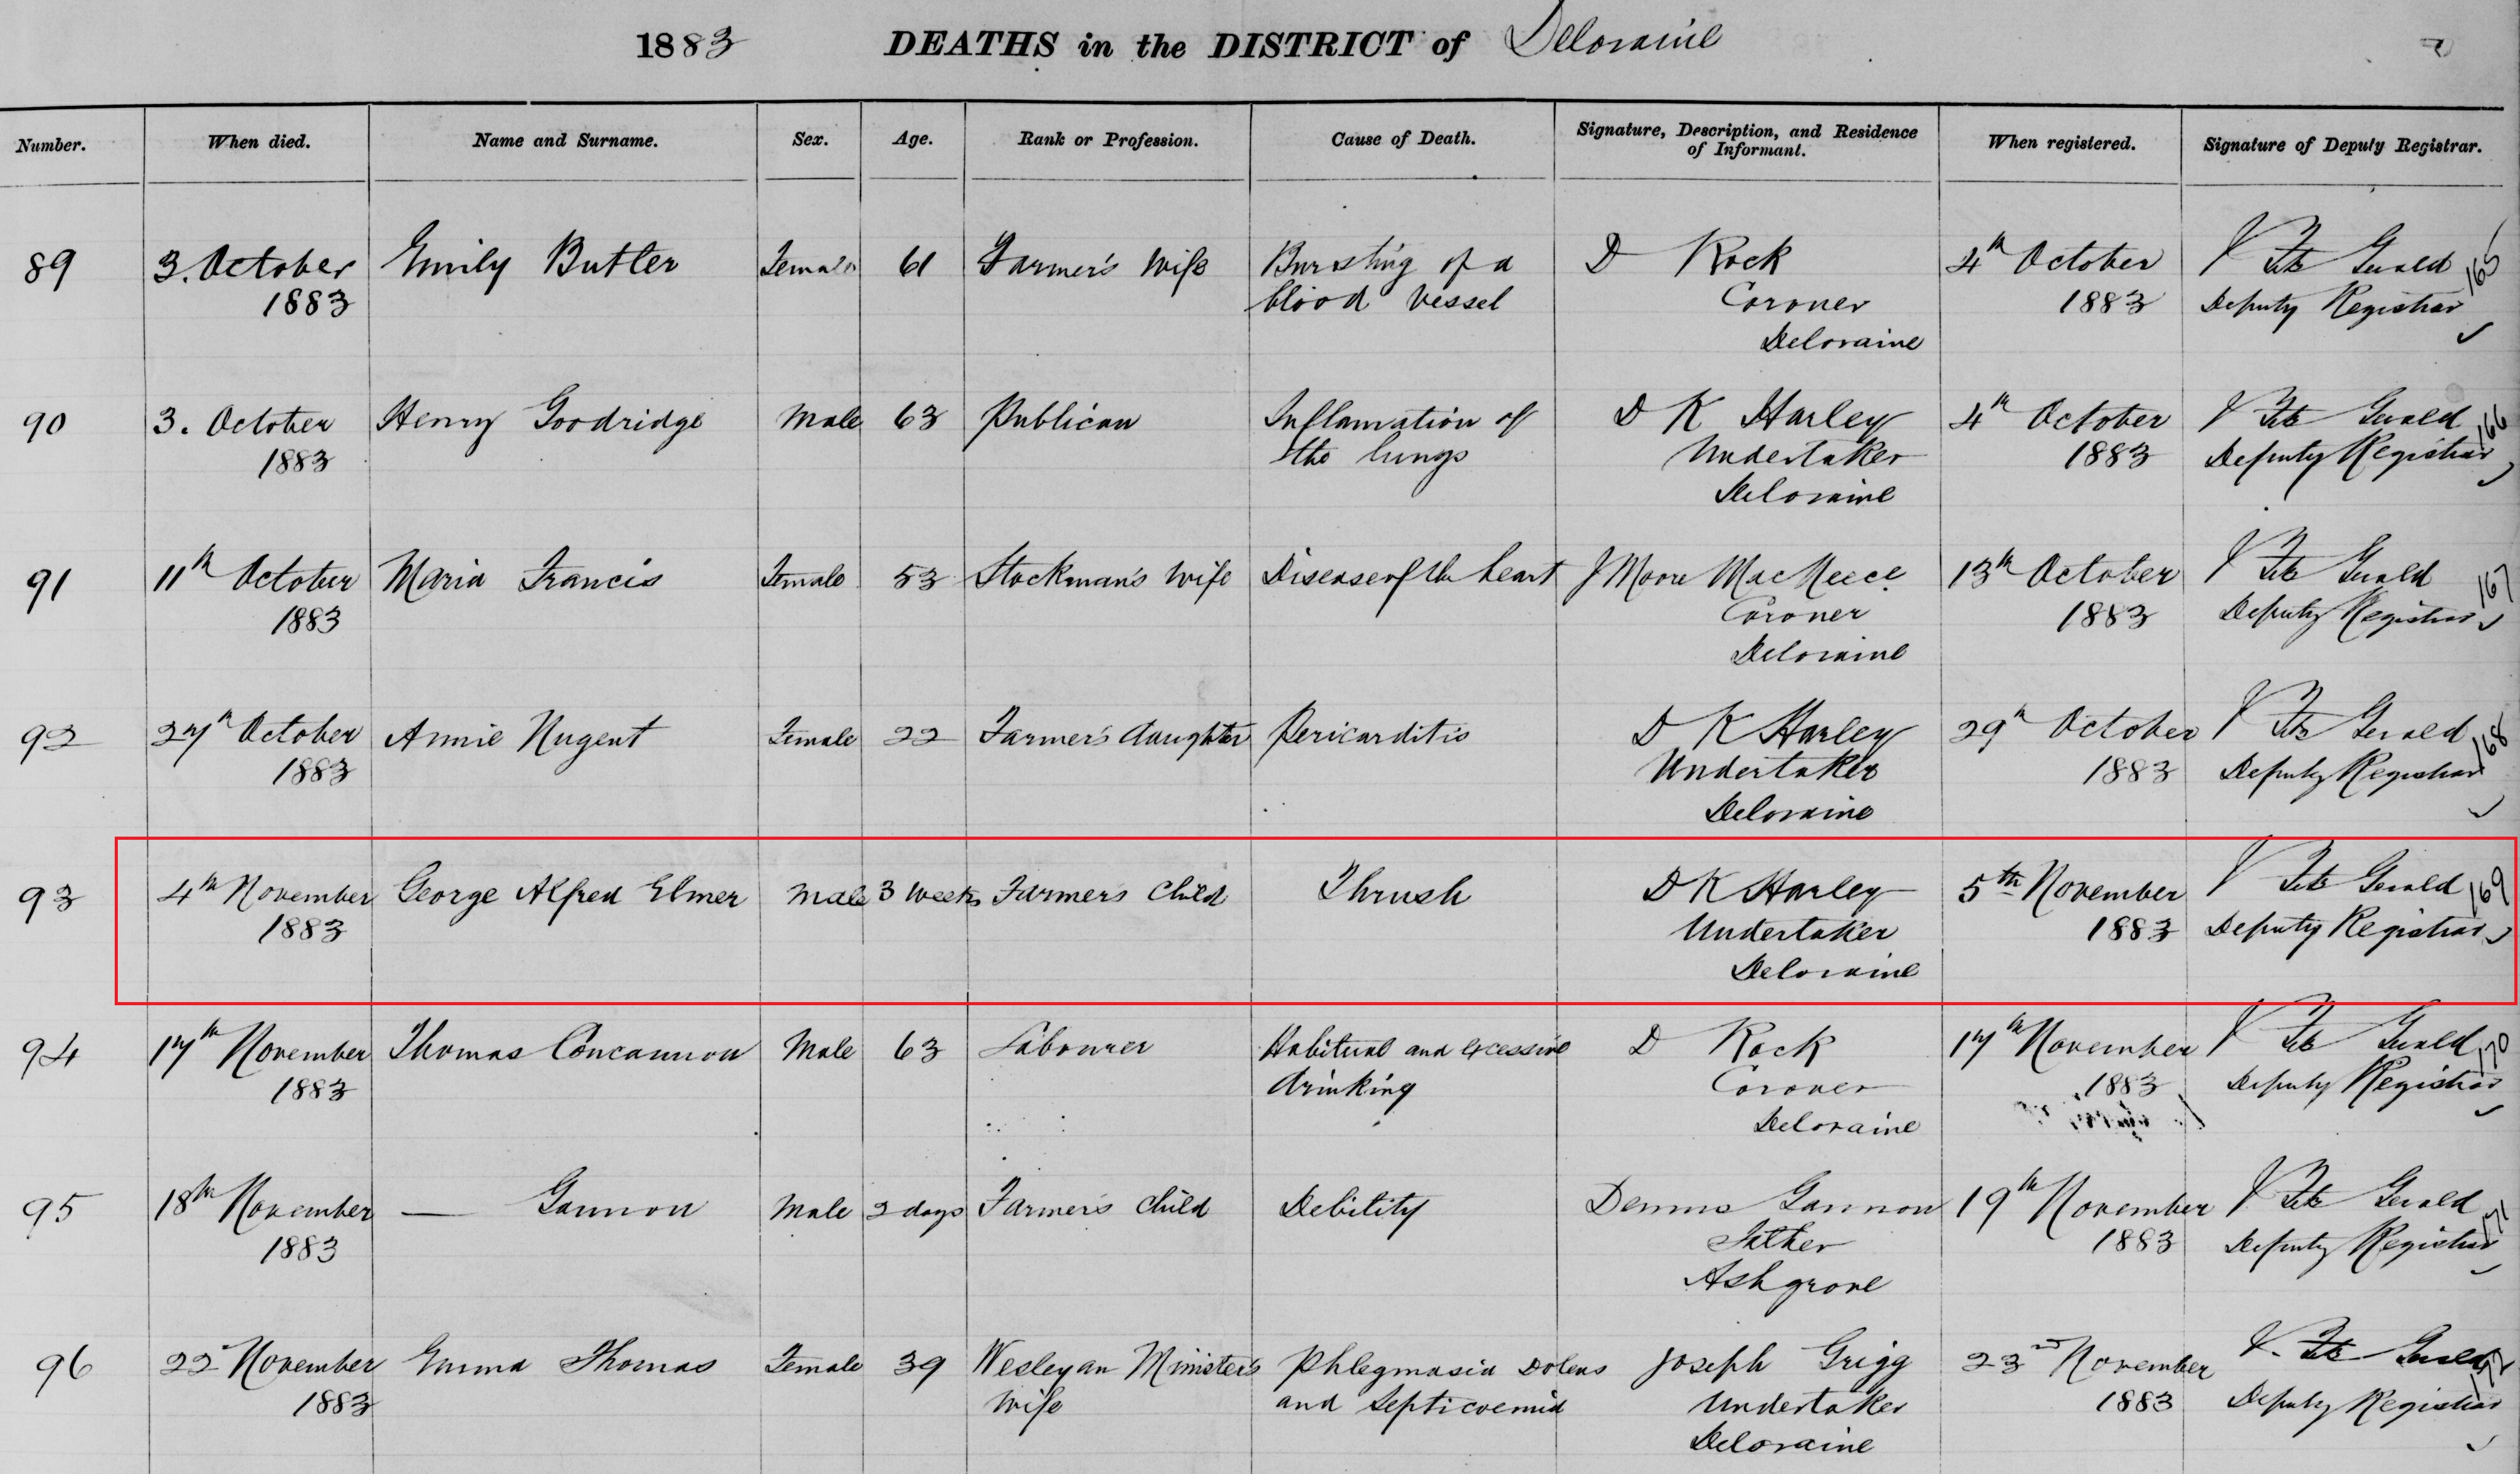 1883 DEATHS in the DISTRICT of Deloraine
Number. When died. Name and Surname. Sex. Age. Rank or Profession. Cause of Death. Signature, Description, and Residence of Informant. When registered. Signature of Deputy Registrar.
89 3. October Emily Butler Female 61 Farmer's Wife Bursting of a D Rock 4th October Fitz Gerald 165
1883 blood vessel Coroner 1883 Deputy Registrar
Deloraine
90 3. October Henry Goodridge Male 63 Publican Inflamation of D K Harley 4th October Fitz Gerald 166
1883 the lungs Undertaker 1883 Deputy Registrar
Deloraine
91 11th October Maria Francis Female 53 Stockman's Wife Disease of the heart J Moore MacNeece 13th October Fitz Gerald 167
1883 Coroner 1883 Deputy Registrar
Deloraine
92 27th October Annie Nugent Female 22 Farmer's daughter Pericarditis D K Harley 29th October Fitz Gerald 168
1883 Undertaker 1883 Deputy Registrar
Deloraine
93 4th November George Alfred Elmer Male 3 weeks Farmer's Child Thrush D K Harley 5th November Fitz Gerald 169
1883 Undertaker 1883 Deputy Registrar
Deloraine
94 17th November Thomas Concannon Male 63 Labourer Habitual and excessive D Rock 17th November Fitz Gerald 170
1883 drinking Coroner 1883 Deputy Registrar
Deloraine
95 18th November — Gannon Male 2 days Farmer's child Debility Dennis Gannon 19th November Fitz Gerald 171
1883 Father 1883 Deputy Registrar
Ashgrove
96 22nd November Emma Thomas Female 39 Wesleyan Minister's Phlegmasia Dolens Joseph Grigg 23rd November Fitz Gerald 172
1883 Wife and Septicoemia Undertaker 1883 Deputy Registrar
Deloraine